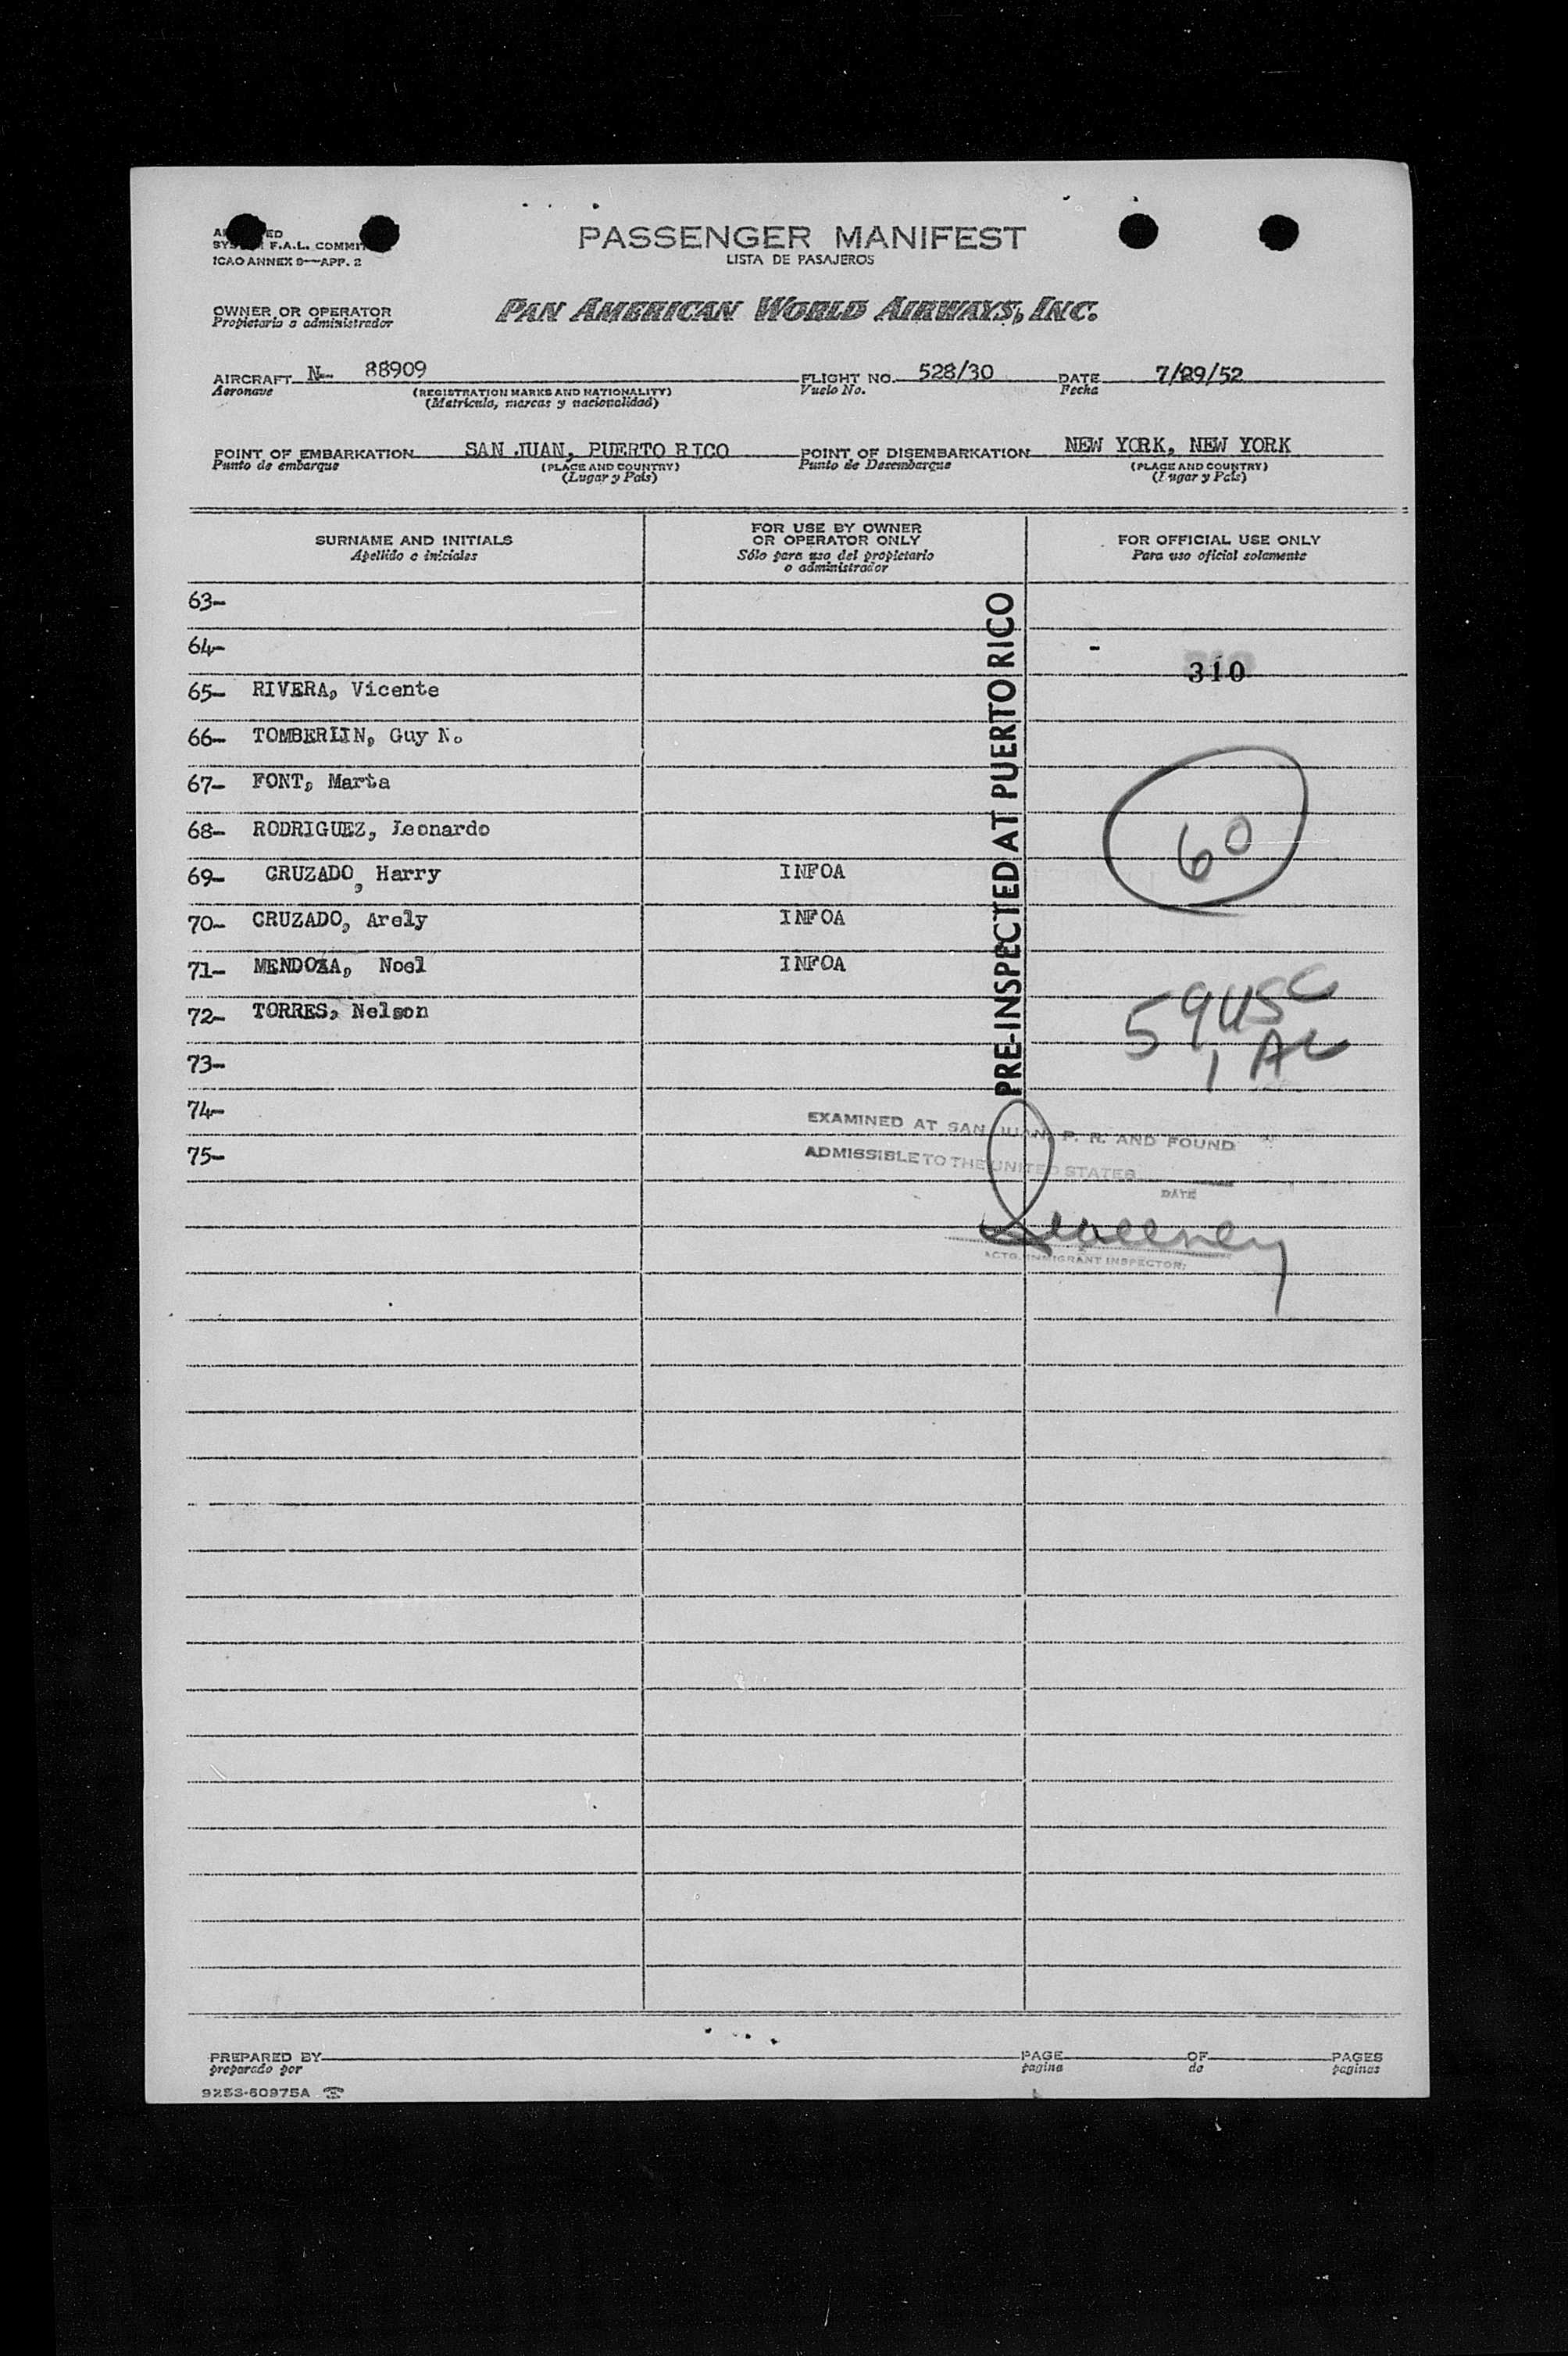 PASSENGER MANIFEST
LISTA DE PASAJEROS
F.A.L.
ICAO ANNEX 9—APP. 2
OWNER OR OPERATOR
Propietario o administrador
PAN AMERICAN WORLD AIRWAYS, INC.
AIRCRAFT N- 88909 FLIGHT NO. 528/30 DATE 7/29/52
Aeronave (REGISTRATION MARKS AND NATIONALITY) Vuelo No. Fecha
(Matrícula, marcas y nacionalidad)
POINT OF EMBARKATION SAN JUAN, PUERTO RICO POINT OF DISEMBARKATION NEW YORK, NEW YORK
Punto de embarque (PLACE AND COUNTRY) Punto de Desembarque (PLACE AND COUNTRY)
(Lugar y País) (Lugar y País)
SURNAME AND INITIALS
Apellido e iniciales
FOR USE BY OWNER
OR OPERATOR ONLY
Sólo para uso del propietario
o administrador
FOR OFFICIAL USE ONLY
Para uso oficial solamente
PRE-INSPECTED AT PUERTO RICO
63-
64-
310
65- RIVERA, Vicente
66- TOMBERLIN, Guy N.
67- FONT, Marta
68- RODRIGUEZ, Leonardo
60
69- CRUZADO, Harry INFOA
70- CRUZADO, Arely INFOA
71- MENDOZA, Noel INFOA
72- TORRES, Nelson
59 USC
1 AL
73-
74-
EXAMINED AT SAN JUAN, P. R. AND FOUND
75-
ADMISSIBLE TO THE UNITED STATES
DATE
Sweeney
ACTG. IMMIGRANT INSPECTOR
PREPARED BY PAGE OF PAGES
preparado por pagina de paginas
9253-60975A